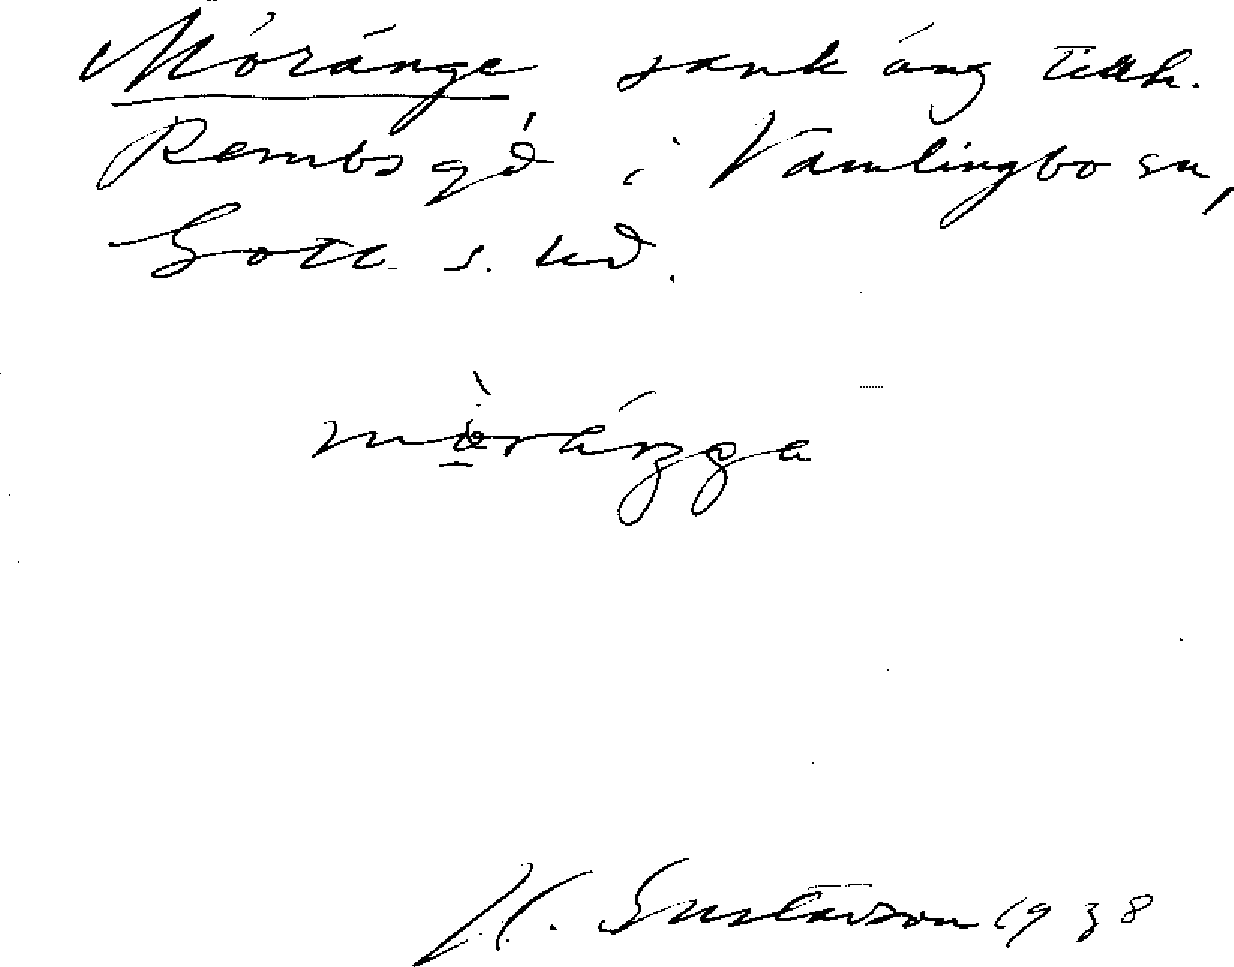 Móránge sank áng tillh.
Rembs gd i Vamlingbo sn,
Gotl. s. hd.
mòráŋga
H. Gustavson 1938